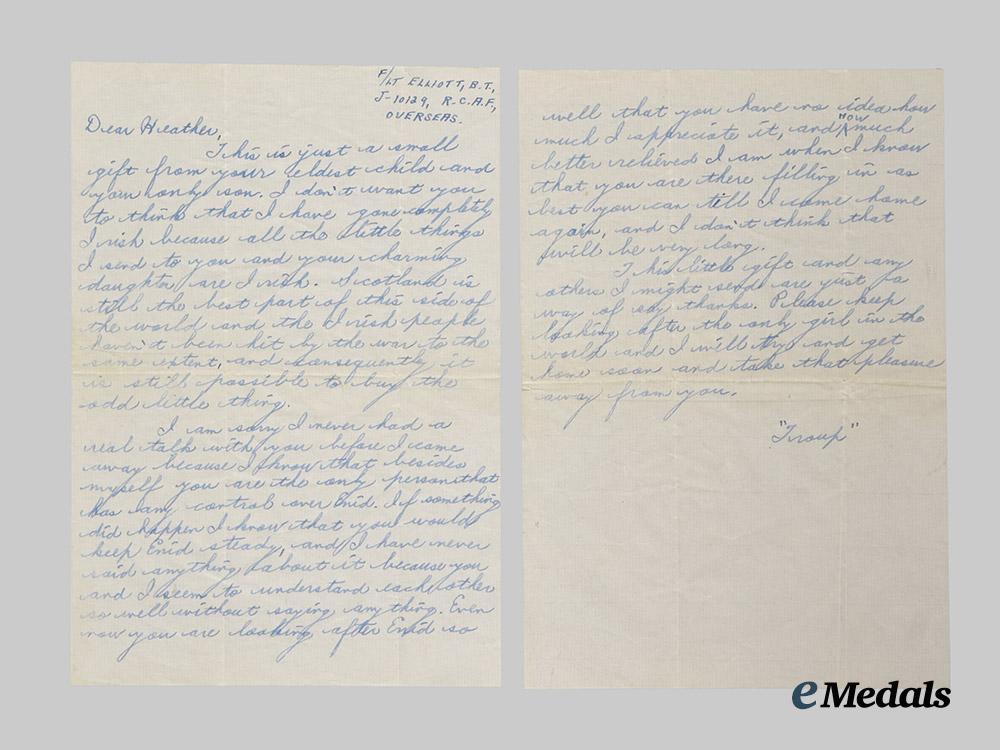 F/LT ELLIOTT, B.T.,
J-10129, R.C.A.F,
OVERSEAS.
Dear Heather,
This is just a small
gift from your eldest child and
your only son. I don't want you
to think that I have gone completly
Irish because all the little things
I send to you and your charming
daughter are Irish. Scotland is
still the best part of this side of
the world and the Irish people
haven't been hit by the war to the
same extent, and consequently it
is still possible to buy the
odd little thing.
I am sorry I never had a
real talk with you before I came
away because I know that besides
myself you are the only person that
has any control over Enid. If something
did happen I know that you would
keep Enid steady, and I have never
said anything about it because you
and I seem to understand each other
so well without saying any thing. Even
now you are looking after Enid so
well that you have no idea how
much I appreciate it, and HOW much
better relieved I am when I know
that you are there filling in as
best you can till I come home
again, and I don't think that
will be very long.
This little gift and any
others I might send are just a
way of say thanks. Please keep
looking after the only girl in the
world and I will try and get
home soon and take that pleasure
away from you.
"Troup"
eMedals